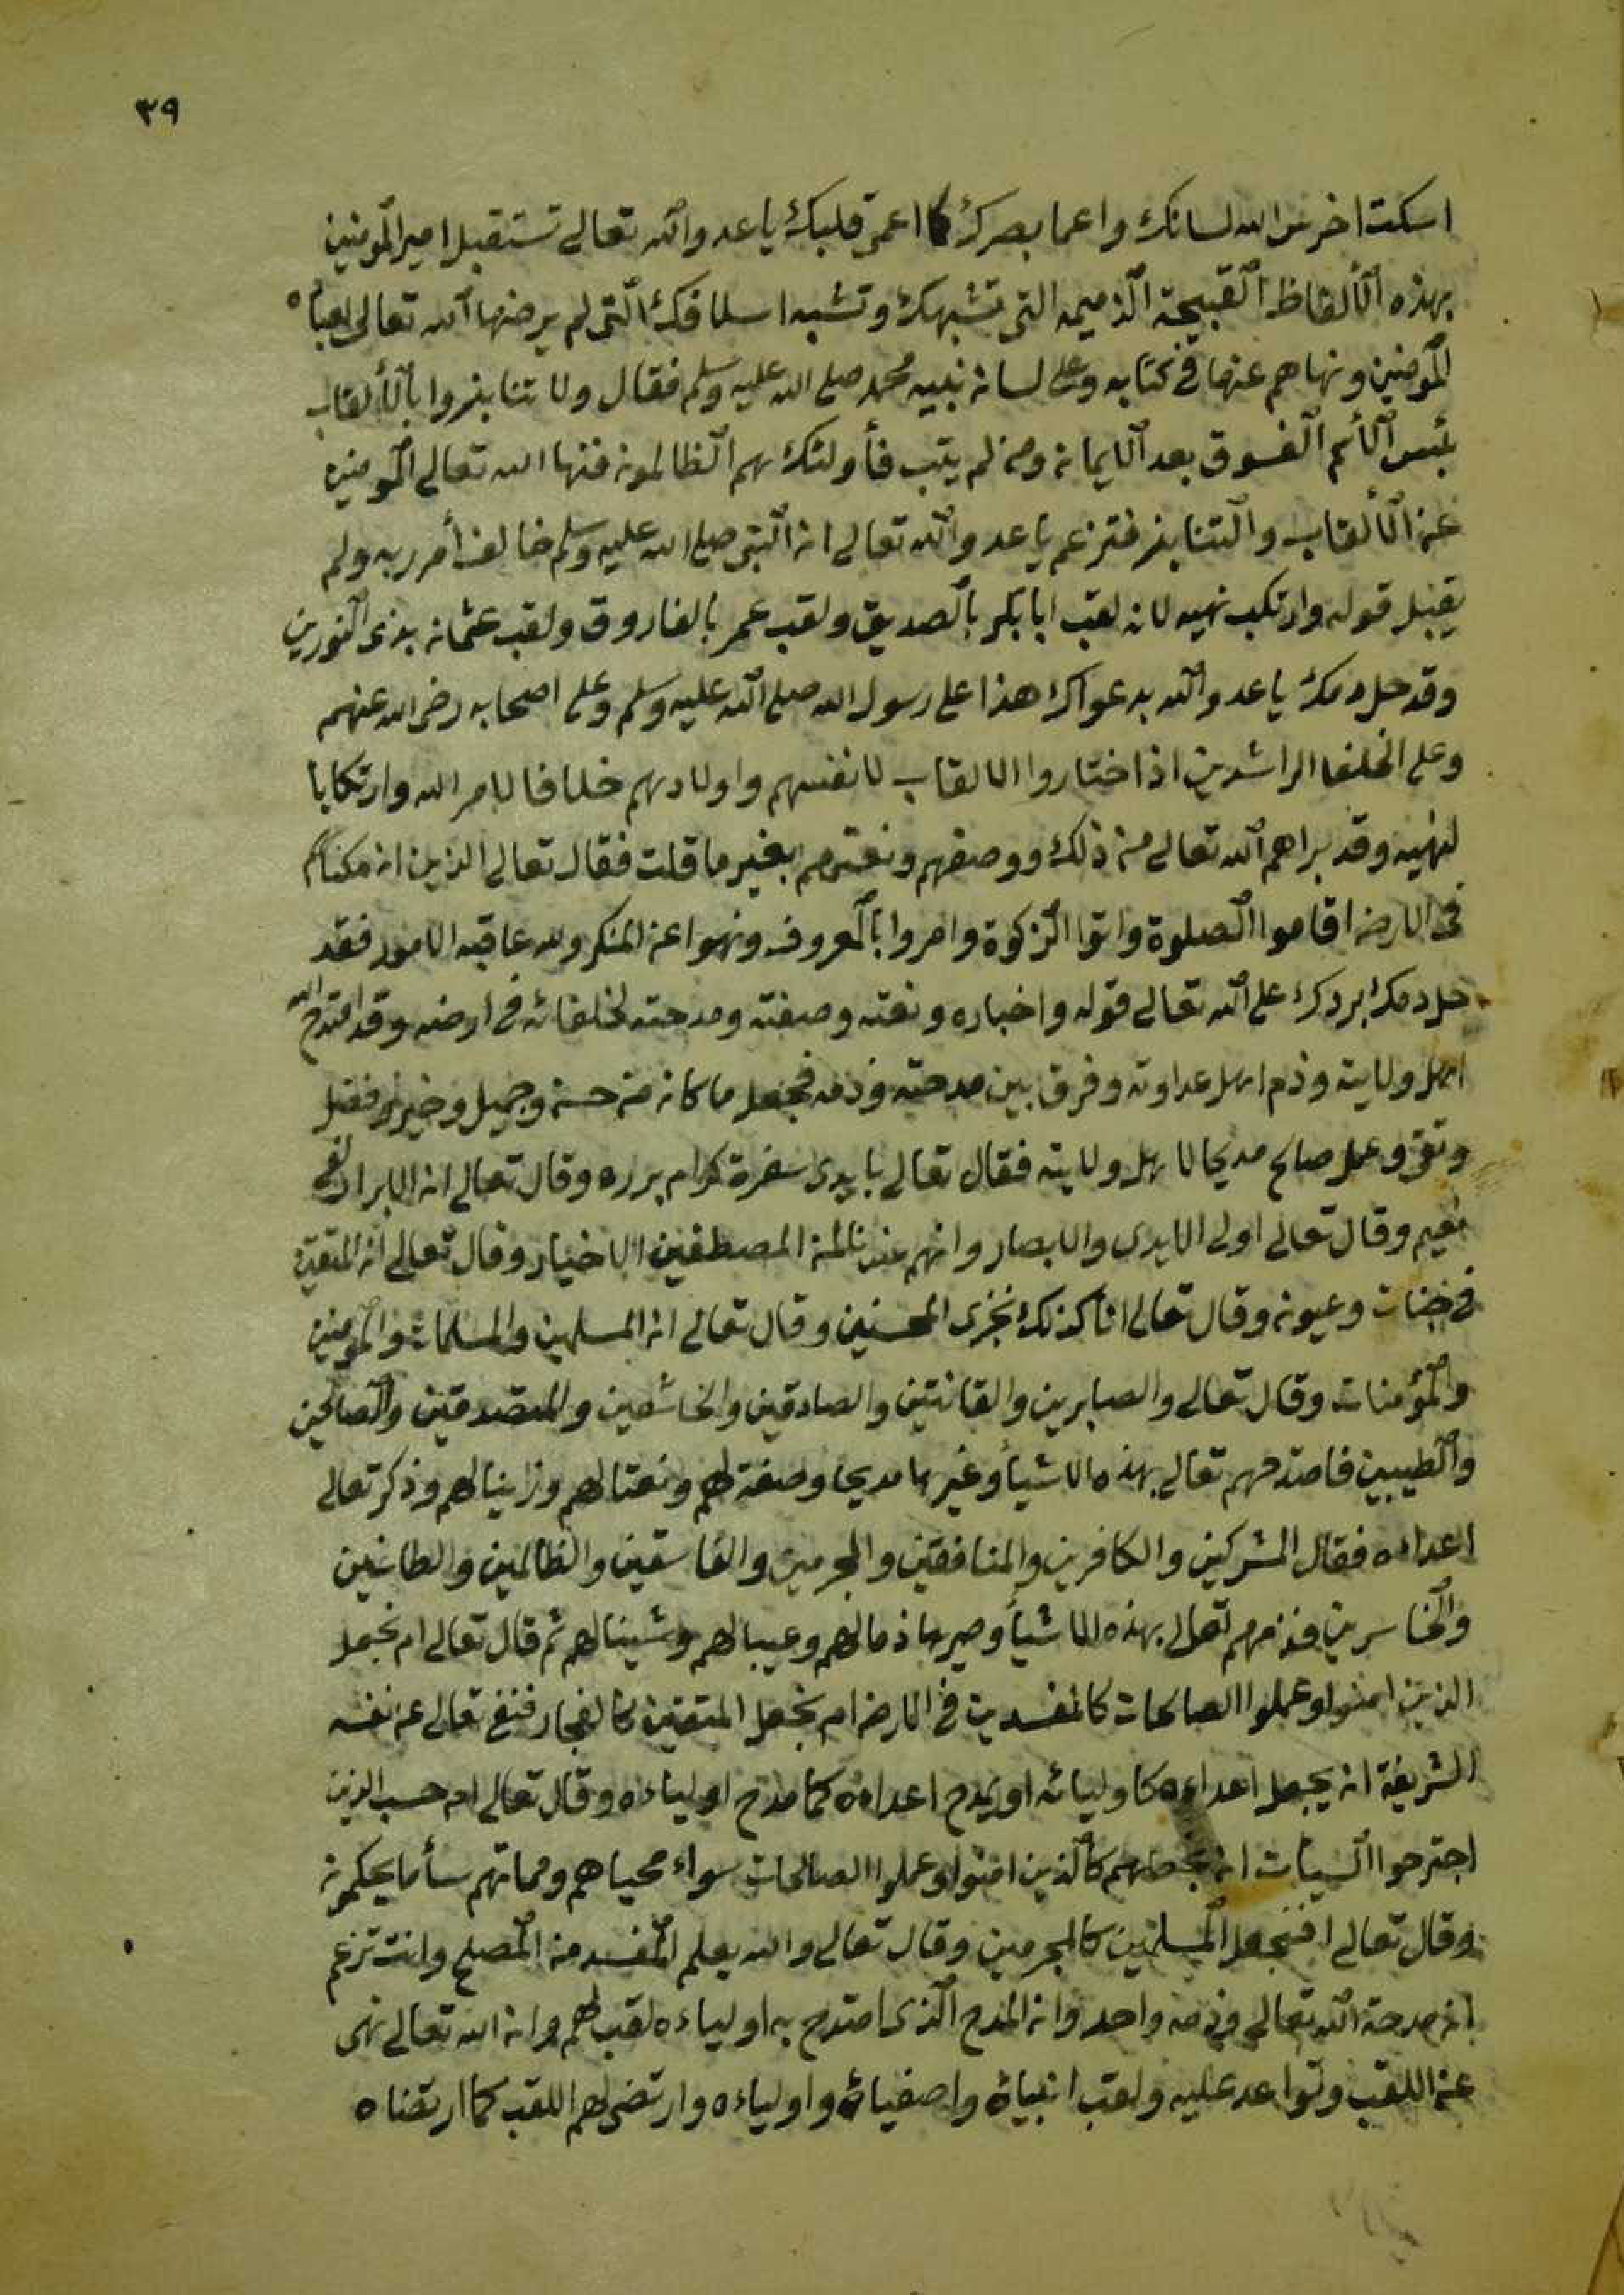 ٣٩
اسكت اخرس الله لسانك واعما بصرك كما اعمى قلبك يا عدو الله تعالى تستقبل امير المومنين
بهذه الألفاظ القبيحة الذميمه التى تشبهك وتشبه اسلافك التى لم يرضها الله تعالى لعباده
المومنين ونهاهم عنها فى كتابه وعلى لسان نبيه محمد صلى الله عليه وسلم فقال ولا تنابزوا بالألقاب
بئس الأسم الفسوق بعد الايمان ومن لم يتب فأولئك هم الظالمون فنها الله تعالى المومنين
عن الألقاب والتنابز فتزعم يا عدو الله تعالى ان النبى صلى الله عليه وسلم خالف أمر ربه ولم
يقبل قوله وارتكب نهيه لانه لقب ابا بكر بالصديق ولقب عمر بالفاروق ولقب عثمان بذى النورين
وقد حل دمك يا عدو الله بدعواك هذا على رسول الله صلى الله عليه وسلم وعلى اصحابه رضى الله عنهم
وعلى الخلفا الراشدين اذ اختاروا الالقاب لانفسهم واولادهم خلافا لامر الله وارتكابا
لنهيه وقد براهم الله تعالى من ذلك ووصفهم ونعتهم بغير ما قلت فقال تعالى الذين ان مكناهم
فى الارض اقاموا الصلوة واتوا الزكوة وامروا بالمعروف ونهوا عن المنكر ولله عاقبه الامور فقد
حل دمك بردك على الله تعالى قوله واخباره ونعته وصفته ومدحته لخلفائه فى ارضه وقد امتدح الله
اهل ولايته وذم اهل عداوته وفرق بين مدحته وذمه فجعل ما كان من حسن وجميل وخير وفضل
وتقى وعمل صالح مديحا لاهل ولايته فقال تعالى بايدى سفرة كرام برره وقال تعالى ان الابرار لفى
نعيم وقال تعالى اولى الايدى والابصار وانهم عندنا لمن المصطفين الاخيار وقال تعالى ان المتقين
فى جنات وعيون وقال تعالى انا كذلك نجزى المحسنين وقال تعالى ان المسلمين والمسلمات والمومنين
والمؤمنات وقال تعالى والصابرين والقانتين والصادقين والخاشعين والمتصدقين والصالحين
والطيبين فامتدحهم تعالى بهذه الاشيأ وغيرها مديحا وصفة لهم ونعتا لهم وزاينا لهم وذكر تعالى
اعداءه فقال المشركين والكافرين والمنافقين والمجرمين والفاسقين والظالمين والطاغين
والخاسرين فذمهم تعالى بهذه الاشيأ وصيرها ذما لهم وعيبا لهم وشينا لهم ثم قال تعالى ام نجعل
الذين امنوا وعملوا الصالحات كالمفسدين فى الارض ام نجعل المتقين كالفجار فنفى تعالى عن نفسه
الشريفة ان يجعل اعداءه كاوليائه او يمدح اعداءه كما مدح اولياءه وقال تعالى ام حسب الذين
اجترحوا السيأت ان نجعلهم كالذين امنوا وعملوا الصالحات سواء محياهم ومماتهم سأ ما يحكمون
وقال تعالى افنجعل المسلمين كالمجرمين وقال تعالى والله يعلم المفسد من المصلح وانت تزعم
ان مدحة الله تعالى وذمه واحد وان المدح الذى امتدح به اولياءه لقب لهم وان الله تعالى نهى
عن اللقب وتواعد عليه ولقب انبياه واصفياه واولياءه وارتضى لهم اللقب كما ارتضاه